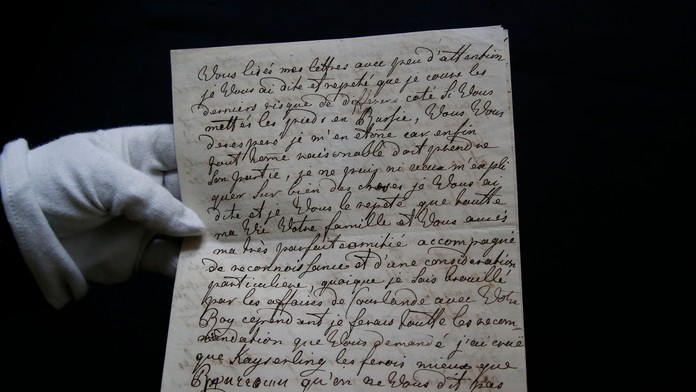 Vous lisés mes lettres avec peu d'attention
je Vous ai dite et repeté que je coure les
derniers risque de differens coté si Vous
mettés les pieds en Russie, Vous Vous
desesperé je m'en etone car enfin
tout home raisonable doit prendre
son partie, je ne puis ni veux m'expli
quer sur bien des choses je Vous ai
dite et je Vous le repete que toutte
ma Vie Votre famille et Vous aurés
ma très parfait amitié accompagné
de reconnoissance et d'une consideration
particuliere, quoique je sois brouillé
par les affaires de Courlande avec Votre
Roy cependant je ferais toutte les recom-
mandation que Vous demandé j'ai crue
que Kayserling les ferois mieux que
qu'on ne Vous dit pas